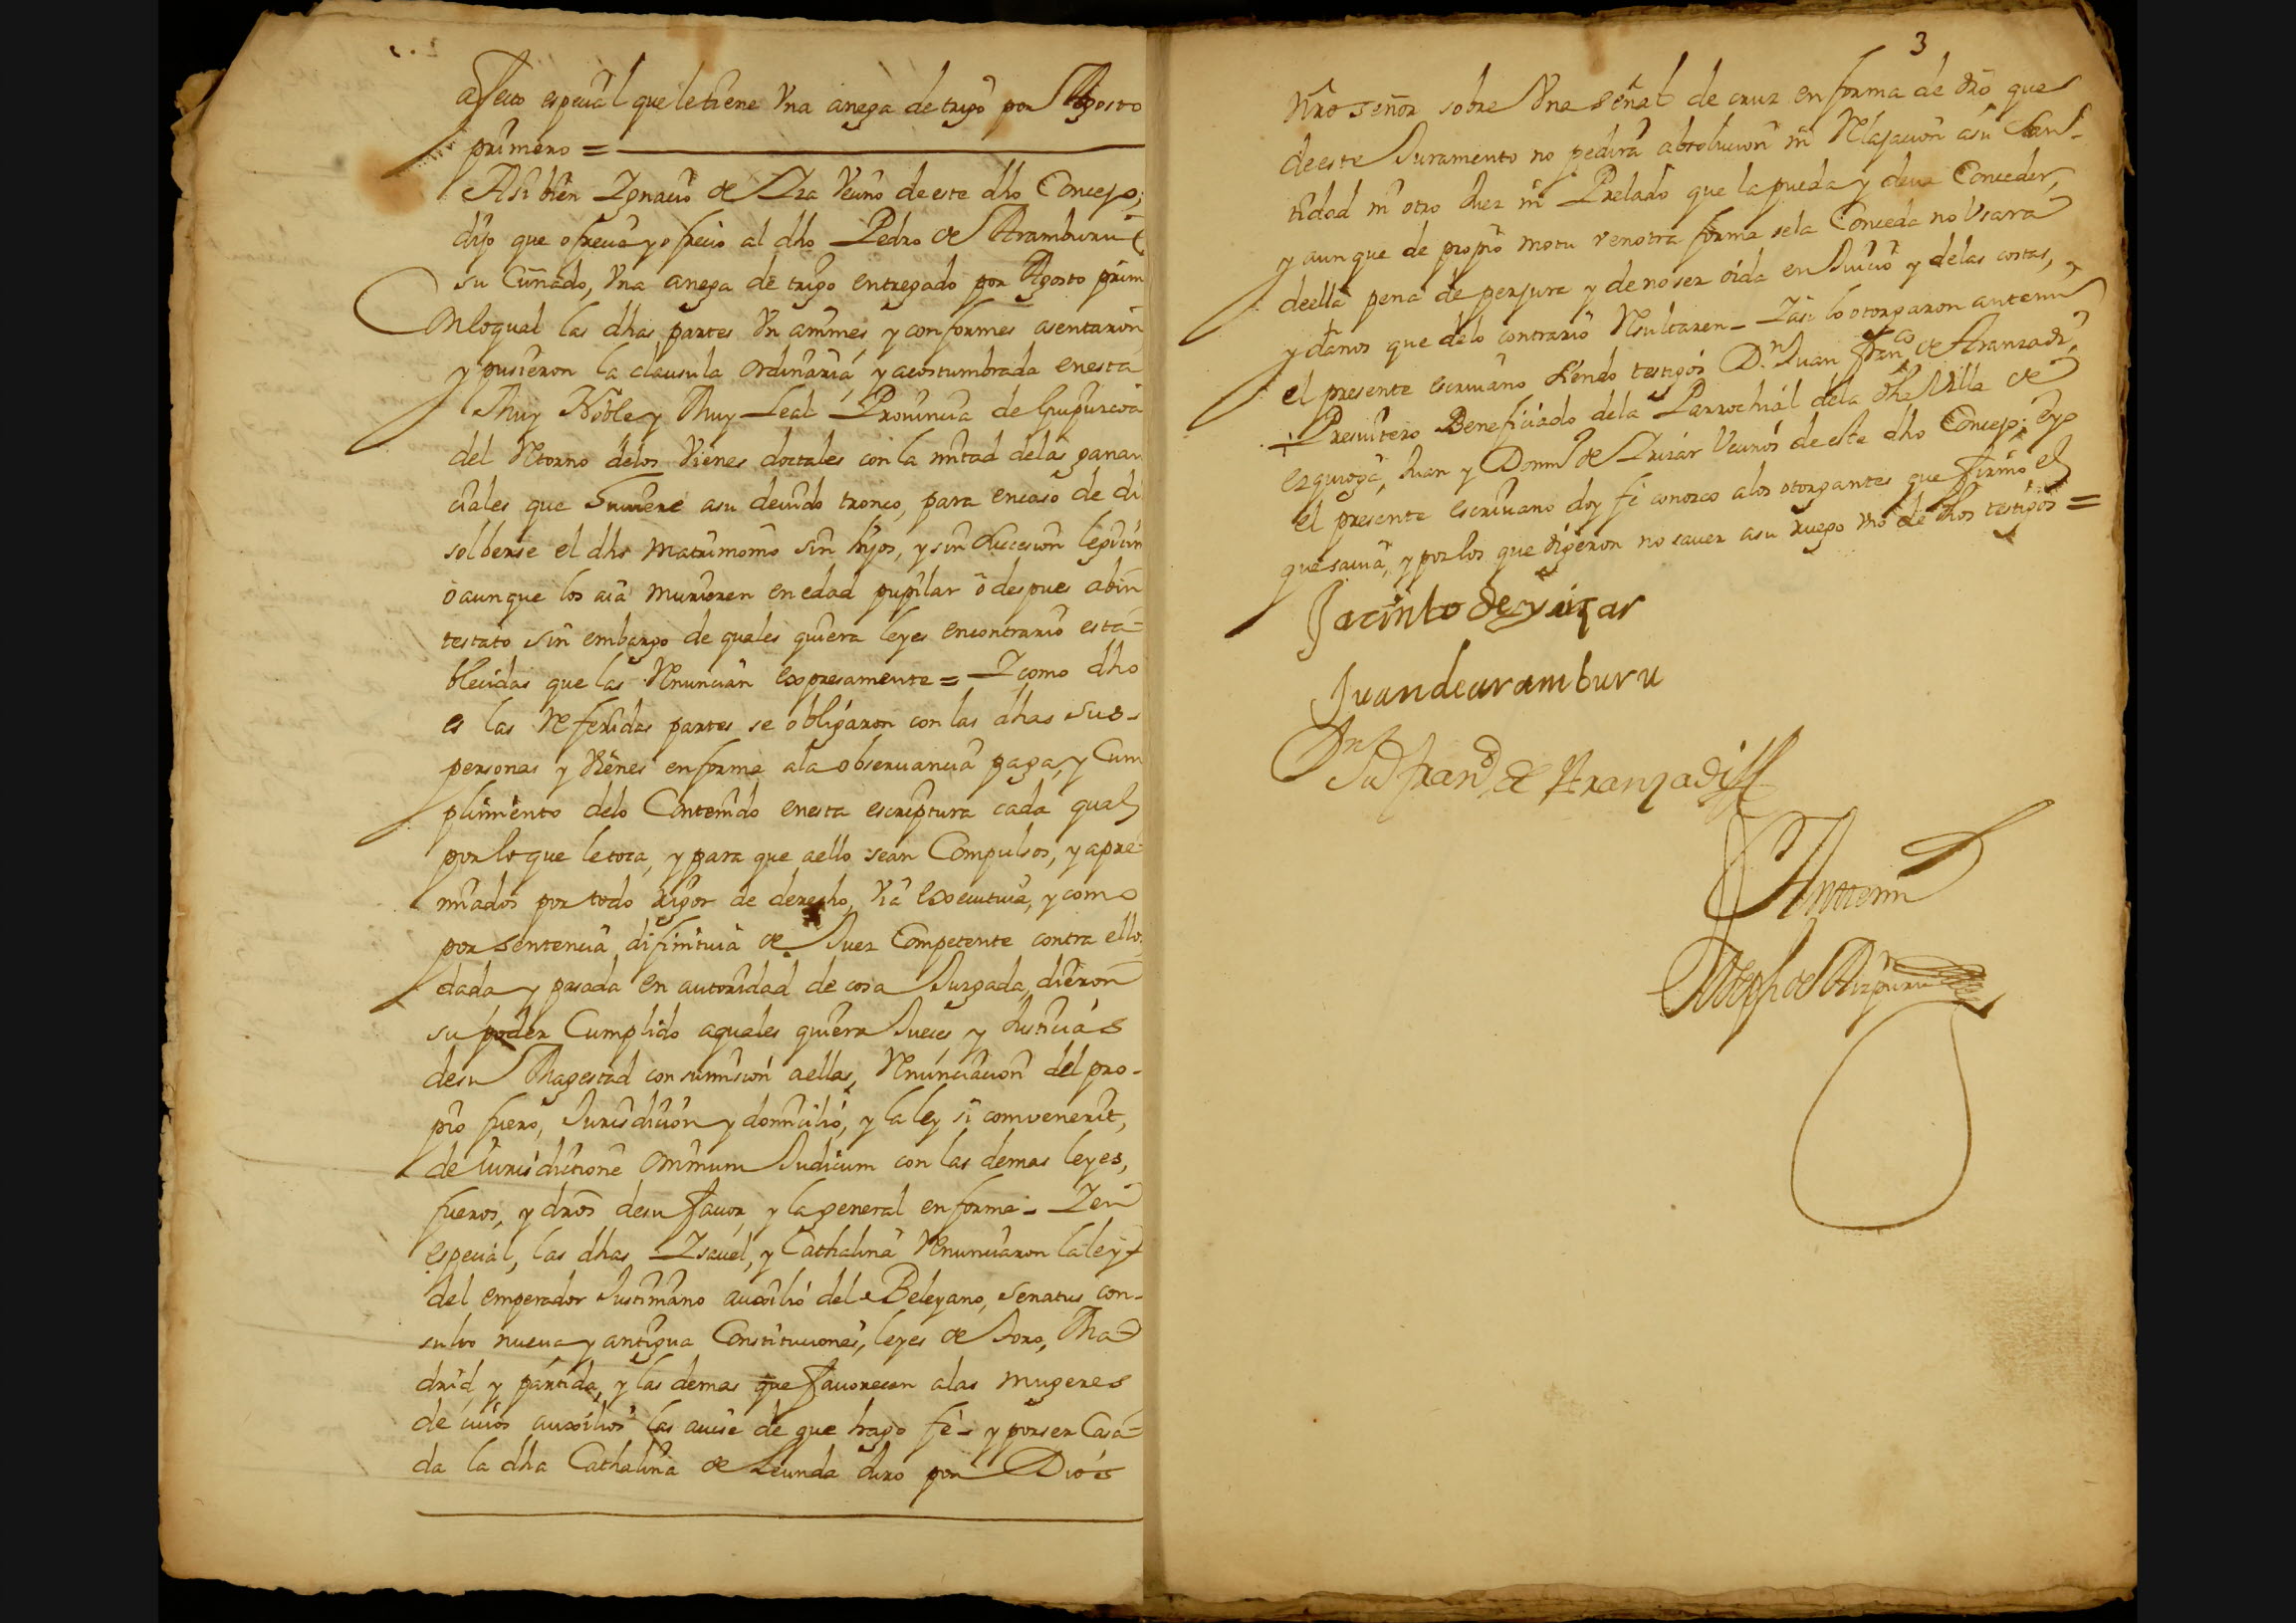 afecto especial que le tiene Vna anega de trigo por Agosto
primero =
Asi bien Ignacio de Vecino de este dho Concejo;
dijo que ofrecia y ofrecio al dho Pedro de Aramburu
su Cuñado, Vna anega de trigo entregado por Agosto prim
Enloqual las dhas partes Vnanimes y conformes asentaron
y pusieron la clausula ordinaria y acostumbrada enesta
Muy Noble y Muy Leal Prouincia de Guipuzcoa
del Retorno delos Vienes doctales con la mitad delas ganan
ciales que Suuiere asu deuido tronco, para encaso de di
solberse el dho matrimonio sin hijos, y sin Succesion legitim
ò aunque los aiâ murieren en edad pupilar ò despues abin
testato sin embargo de quales quiera leyes encontrario esta=
blecidas que las Renuncian expresamente = Y como dho
es las Referidas partes se obligaron con las dhas sus-
personas y Vienes enforma ala obseruancia paga, y Cum
plimiento delo Contenido enesta escriptura cada qual
por lo que le toca, y para que aello sean Compulsos, y apre-
miados por todo rigor de derecho, Via Executiua, y como
por sentencia difinitiua de Juez Competente contra ellos
dada y pasada en autoridad de cosa Juzgada, dieron
su poder Cumplido aquales quiera Jueces y Justicias
desu Magestad con sumision aellas, Renunciacion del pro-
pio fuero, Jurisdicion y domicilio, y la ley si comvenerit,
de Iurisdictione omnium Judicum con las demas leyes,
fueros, y dros desu fauor, y la general enforma - Y en
especial, las dhas Ysauel, y Cathalina Renunciaron la ley
del emperador Justiniano auxilio del Beleyano, senatus con-
sulto nueua y antigua Constituciones, leyes de Toro, Ma-
drid y partida, y las demas que fauorecen alas mugeres
de cuios auxilios las auise de que hago fè - y por ser Casa-
da la dha Cathalina de Leunda Juro por Dios
3
Nro señor sobre Vna señal de cruz enforma de dro que
deeste Juramento no pedirà absolucion ni Relajacion asu San-
tidad ni otro Juez ni Prelado que la pueda y deua Conceder,
y aunque de propio motu y enotra forma sela Conceda no Vsara
deella pena de perjura y de no ser oida en Juicio y delas costas,
y daños que delo contrario Resultaren - Y asi lo otorgaron antemi
el presente escriuano siendo testigos Dn Juan Franco de Aranzadi,
Presuitero Beneficiado dela Parrochial dela dha Villa de
Ezquioga, Juan y Domo de Irizar Vecinos de este dho Concejo; è yo
el presente escriuano doy fè conozco alos otorgantes que firmò el
que sauia, y por los que digeron no sauer asu ruego vno de dhos testigos =
Jacinto de yrizar
Juan de aramburu
Dn Ju franco de Aranzadi
Antemi
Joseph de Aizpuru